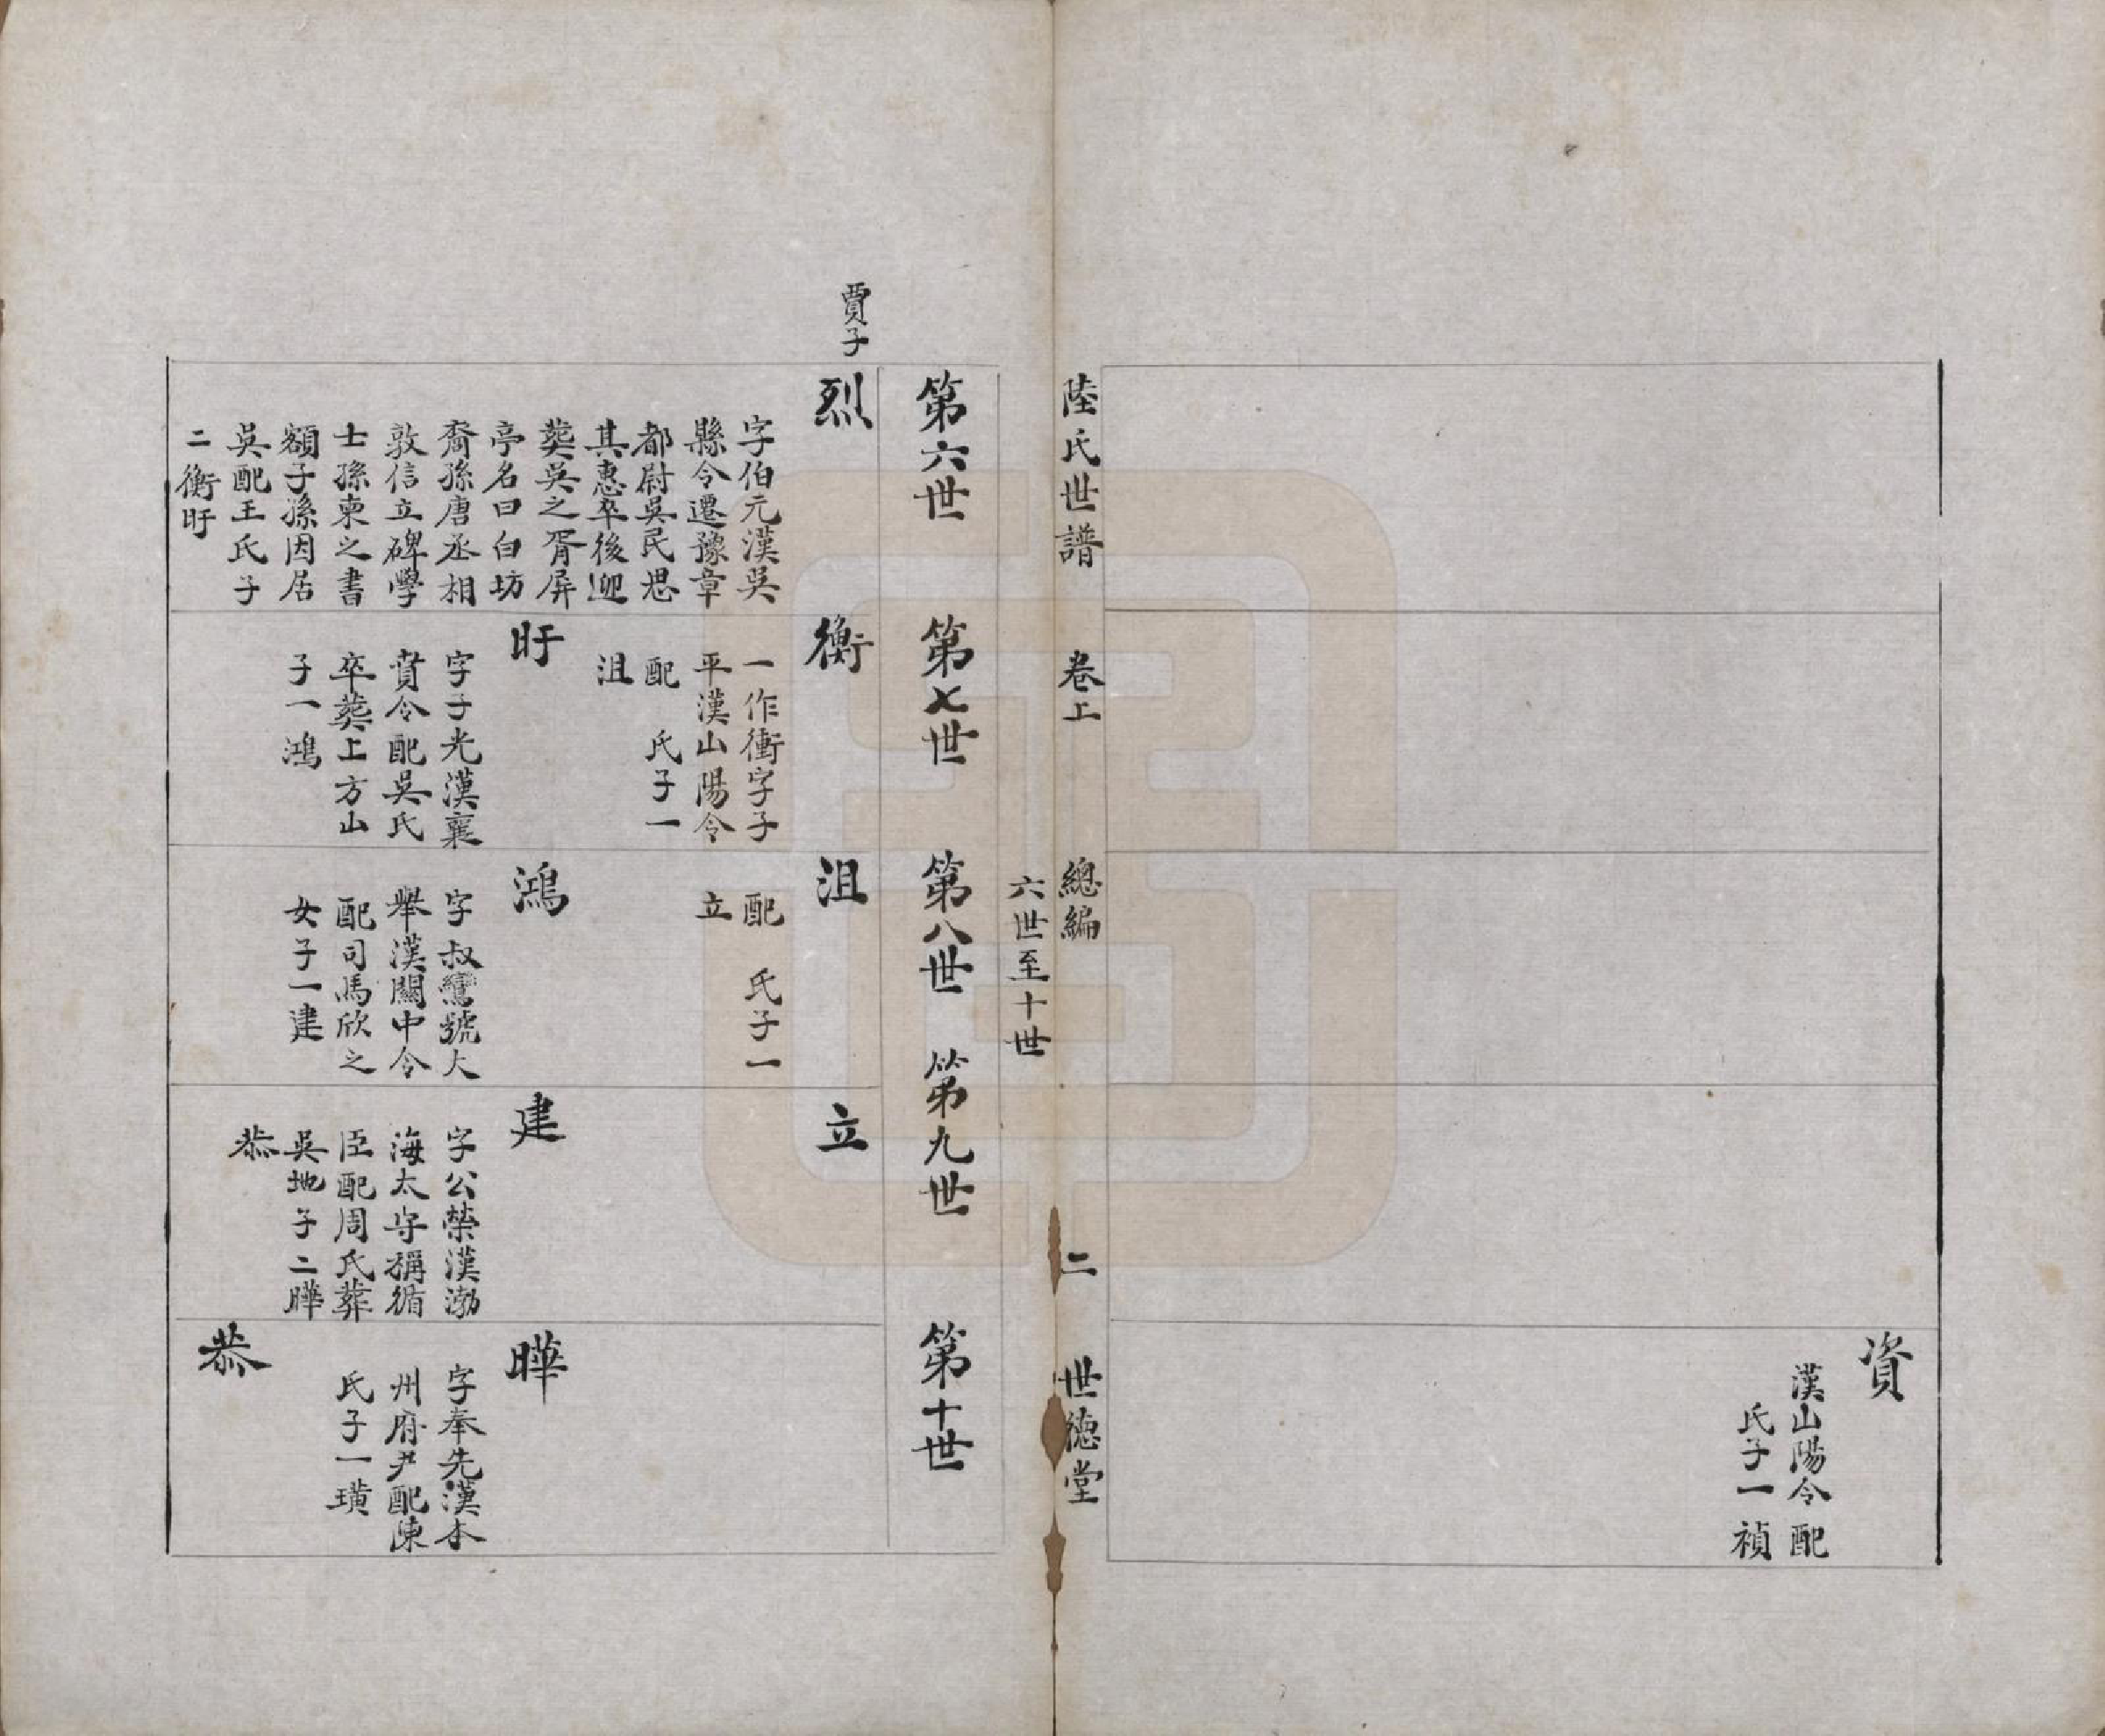 資
漢山陽令 配
氏子一禎
陸氏世譜 卷上 總編 二 世德堂
六世至十世
第六世 第七世 第八世 第九世 第十世
賈子
烈
字伯元漢吳
縣令遷豫章
都尉吳民思
其惠卒後迎
葬吳之胥屏
亭名曰白坊
裔孫唐丞相
敦信立碑學
士孫東之書
額子孫因居
吳配王氏子
二衡盱
衡
一作衝字子
平漢山陽令
配 氏子一
沮
盱
字子光漢襄
賁令配吳氏
卒葬上方山
子一鴻
沮
配 氏子一
立
鴻
字叔鸞號大
舉漢關中令
配司馬欣之
女子一建
立
建
字公榮漢渤
海太守稱循
臣配周氏葬
吳地子二曄
恭
曄
字奉先漢本
州府尹配陳
氏子一璜
恭